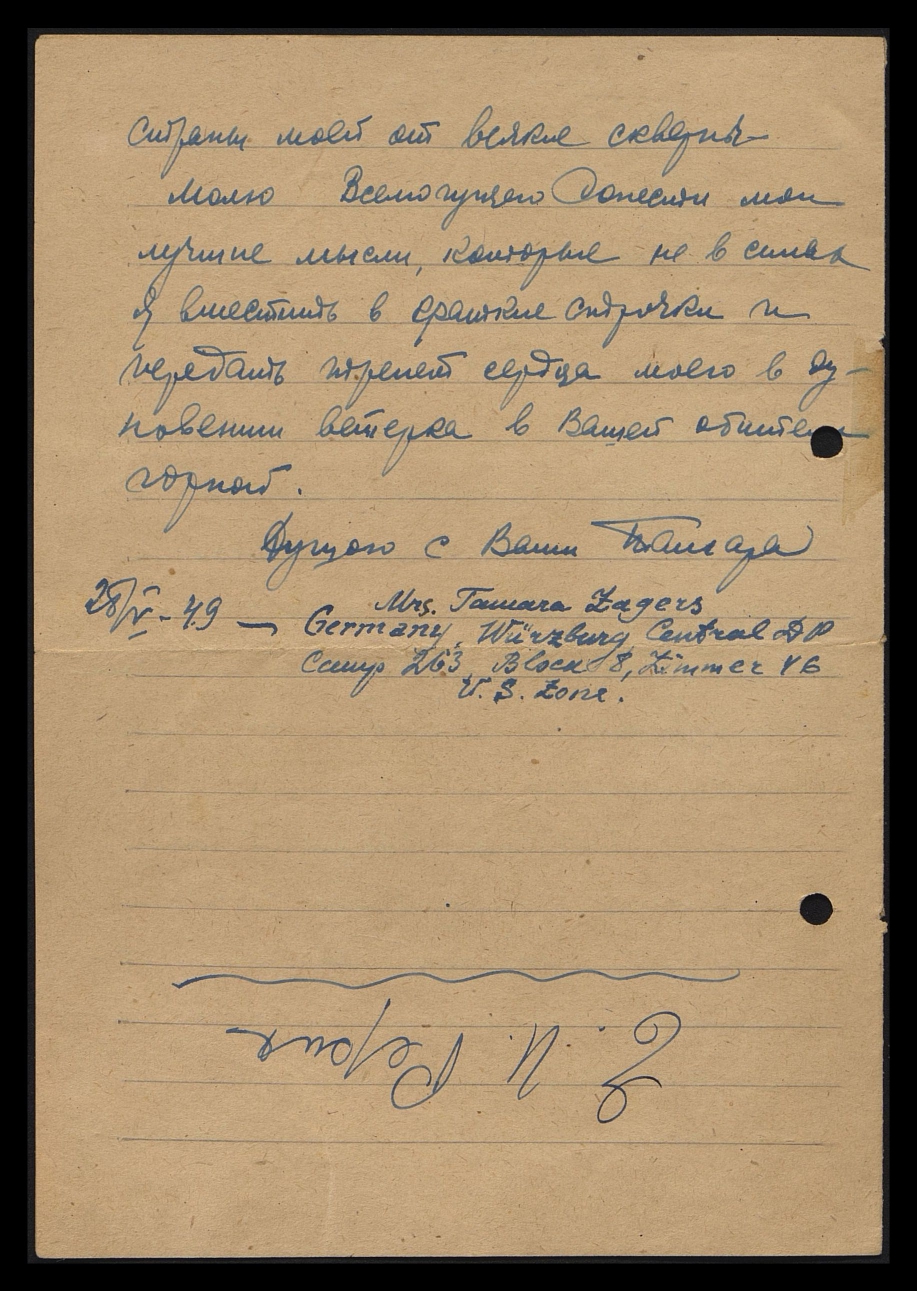 страны моей от всякие скверны
Молю Всемогущего донести мои
лучшие мысли, которые не в силах
я вместить в краткие строчки и
передать трепет сердца моего в ду-
новении ветерка в Вашей обители
горной.
Душою с Вами Тамара
28/V-49 — Mrs. Tamara Zagers
Germany, Würzburg Central DP
Camp 263, Block 8, Zimmer 46
U. S. Zone.
Е. И. Рерих